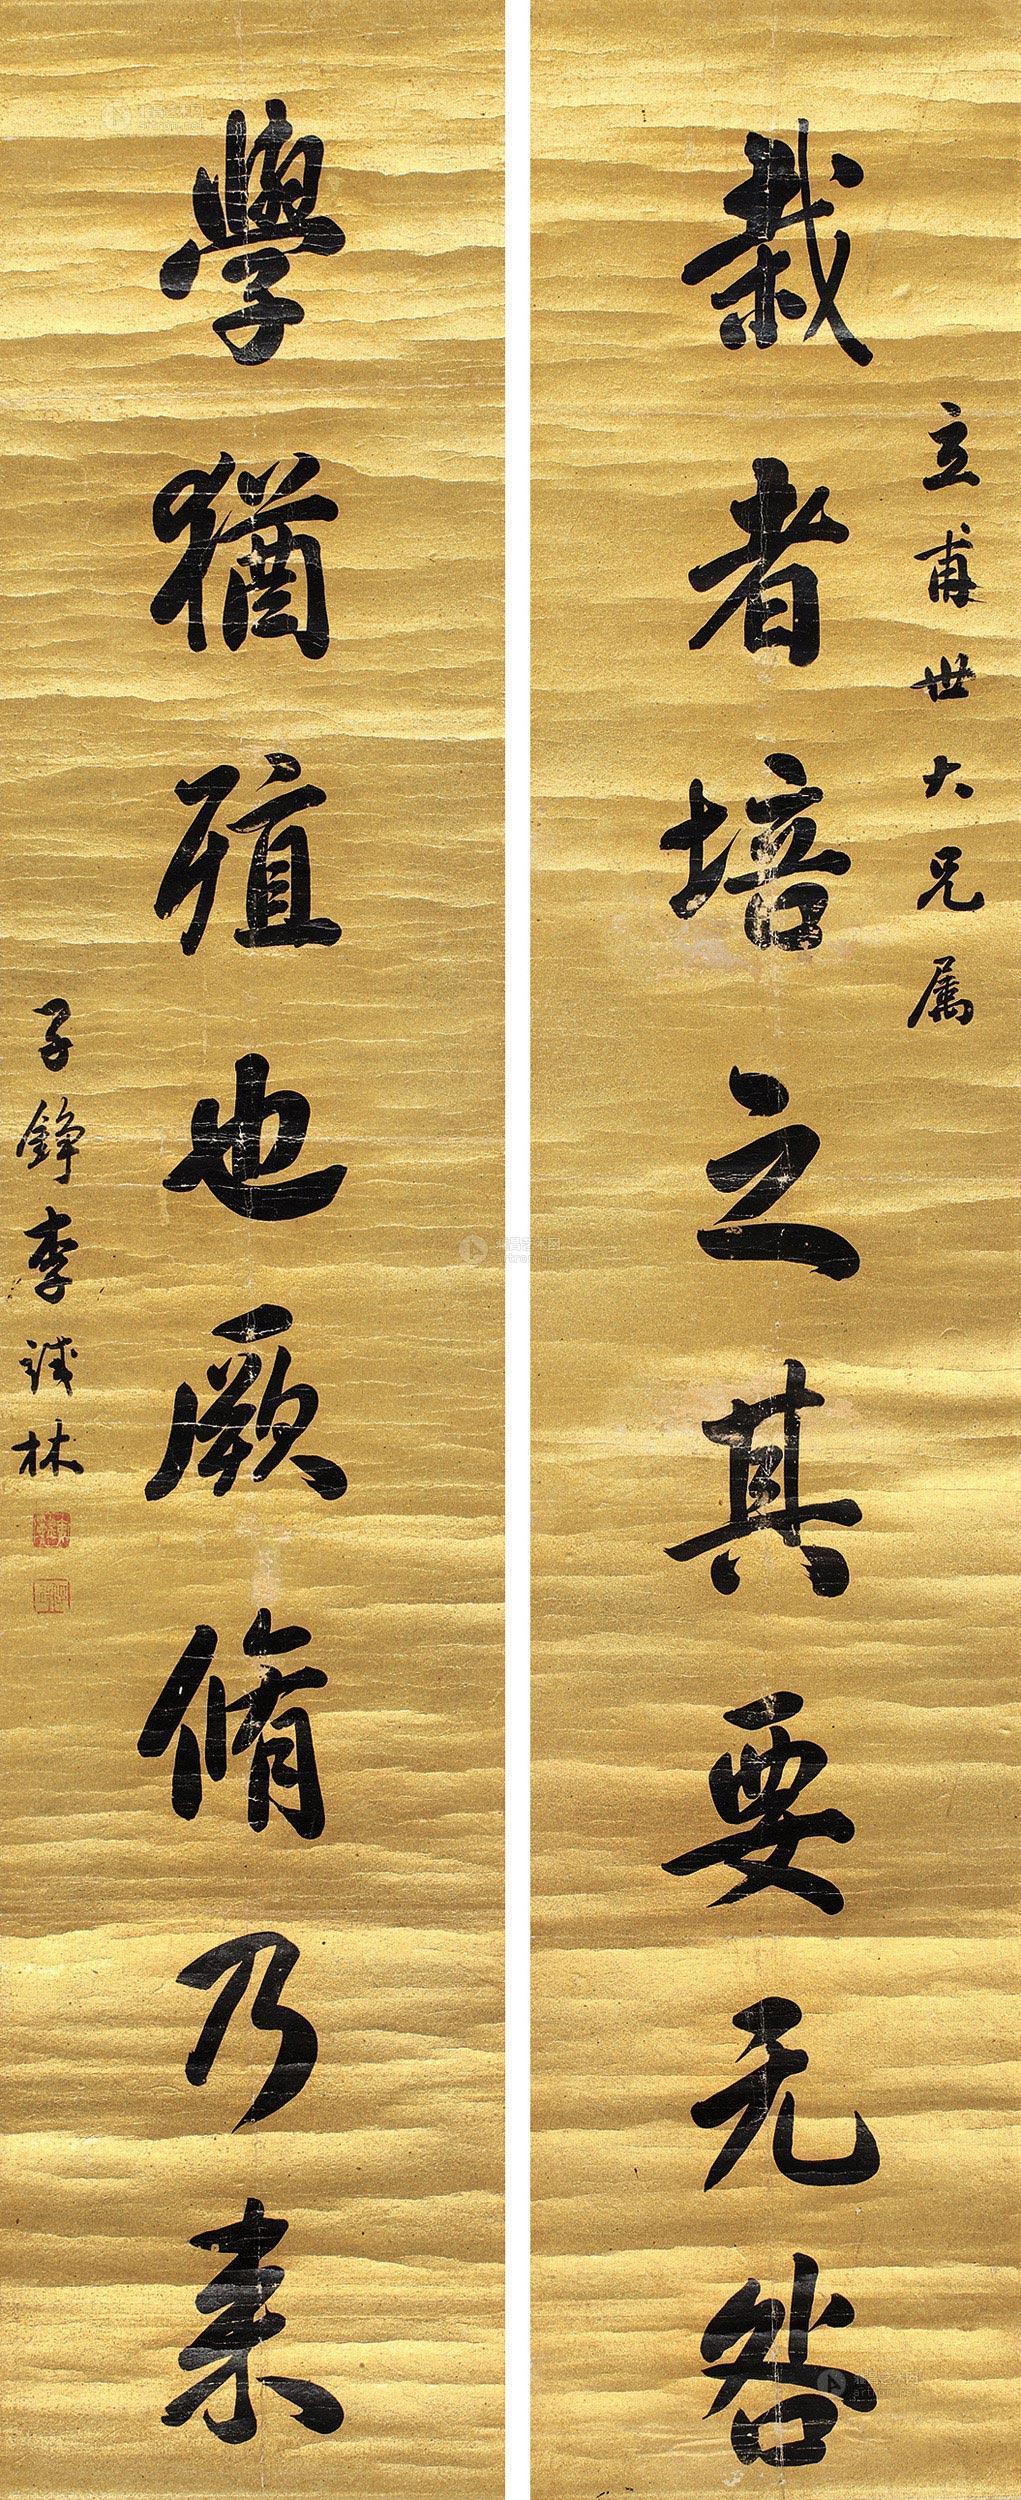 栽者培之其要无咎
立甫世大兄属
學猶殖也厥脩乃来
子錚李誠林